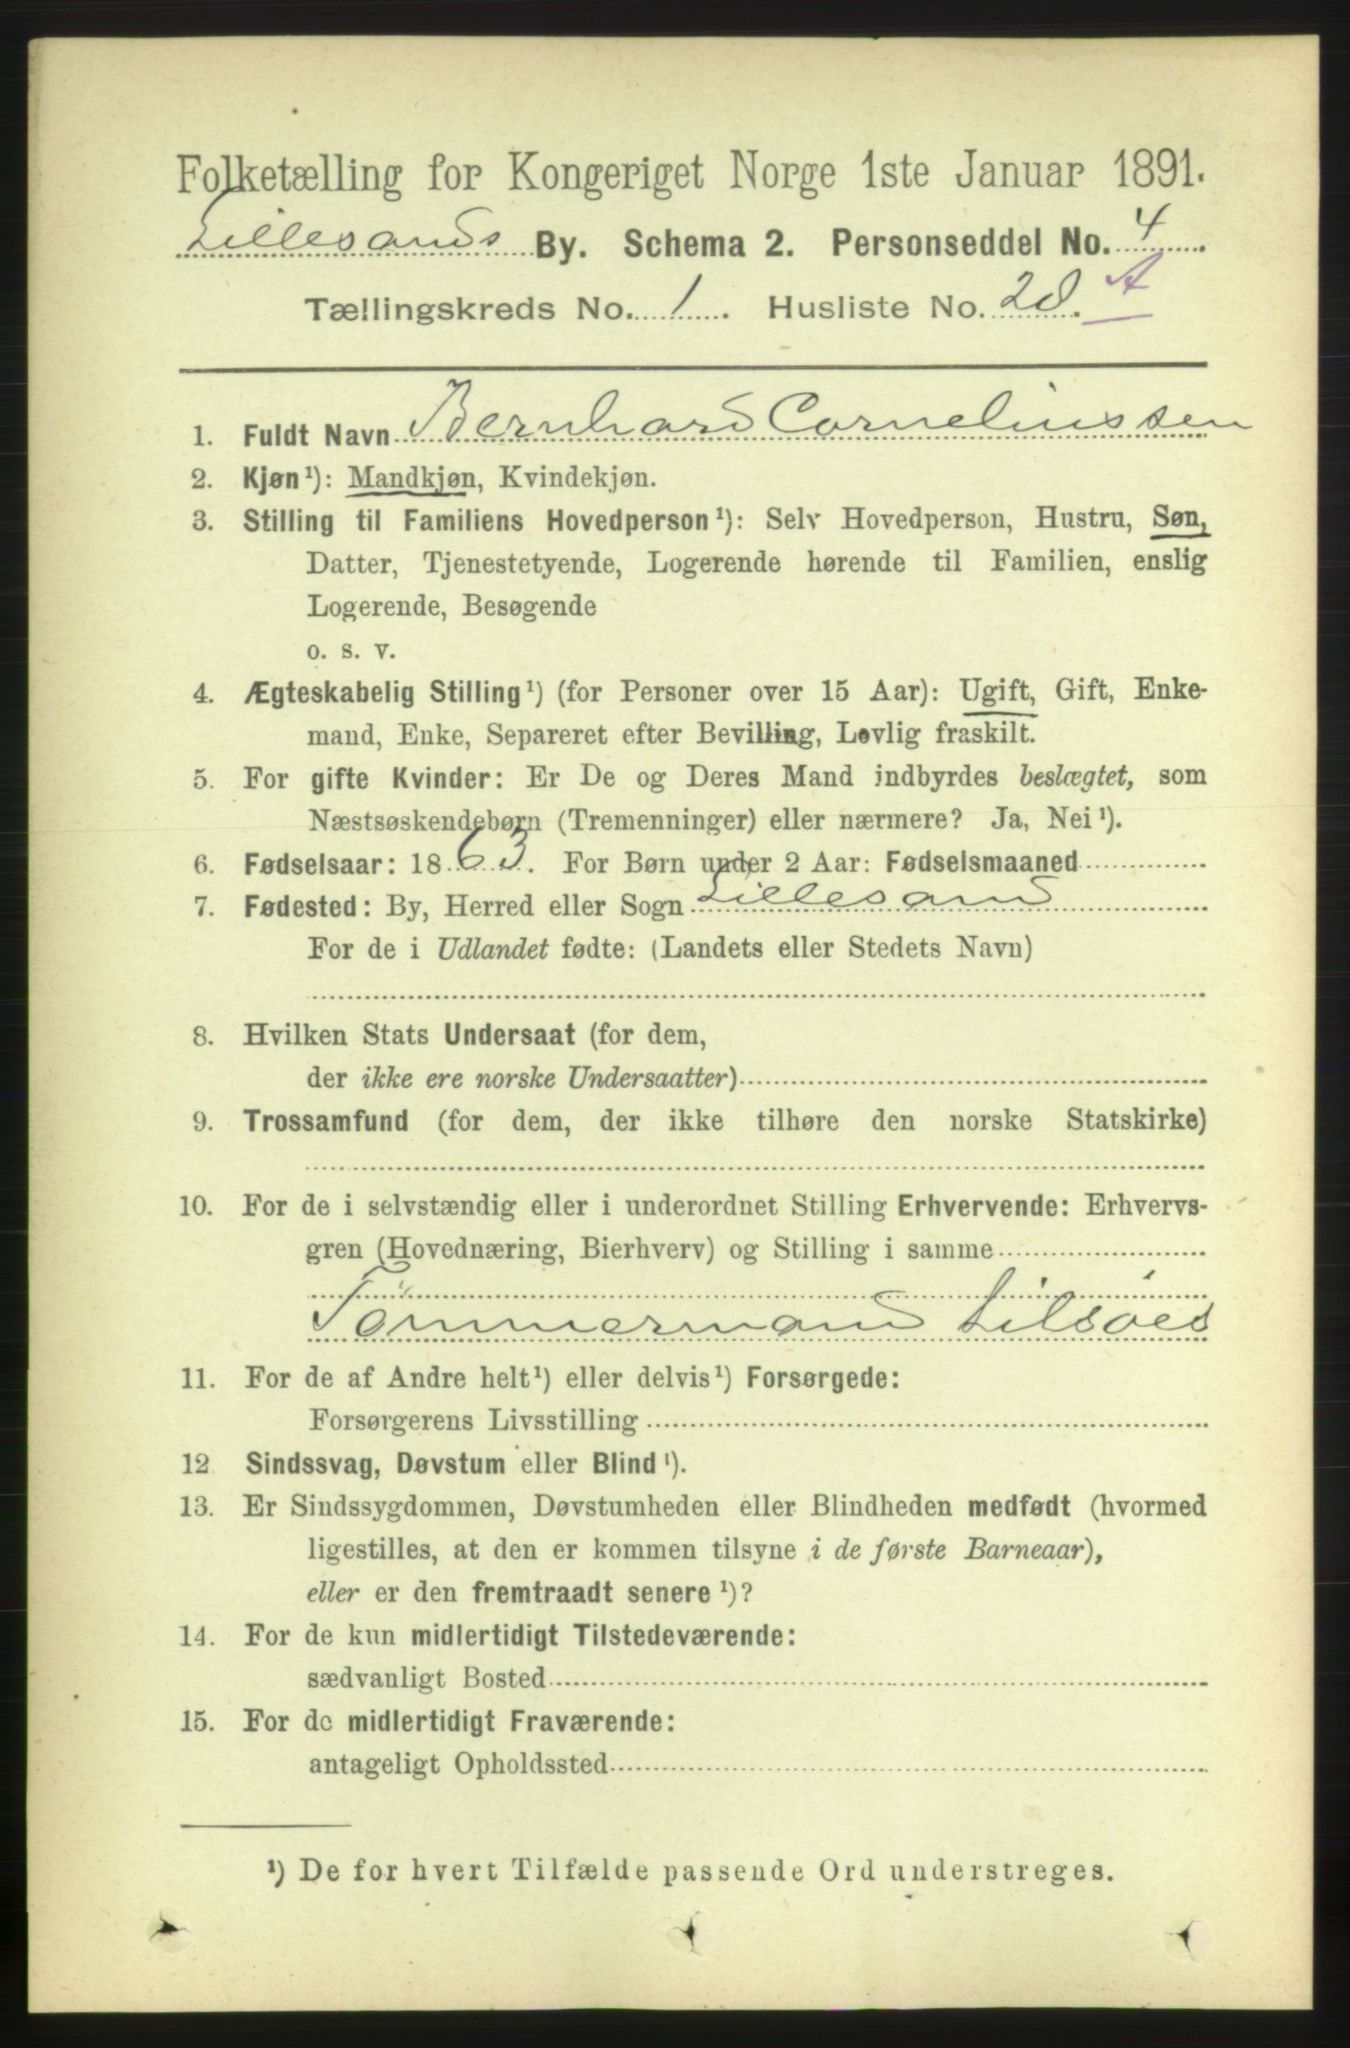 Folketælling for Kongeriget Norge 1ste Januar 1891.
Lillesands By. Schema 2. Personseddel No. 4
Tællingskreds No. 1. Husliste No. 20. A
1. Fuldt Navn Bernhard Corneliussen
2. Kjøn¹): Mandkjøn, Kvindekjøn.
3. Stilling til Familiens Hovedperson¹): Selv Hovedperson, Hustru, Søn,
Datter, Tjenestetyende, Logerende hørende til Familien, enslig
Logerende, Besøgende
o. s. v.
4. Ægteskabelig Stilling¹) (for Personer over 15 Aar): Ugift, Gift, Enke-
mand, Enke, Separeret efter Bevilling, Lovlig fraskilt.
5. For gifte Kvinder: Er De og Deres Mand indbyrdes beslægtet, som
Næstsøskendebørn (Tremenninger) eller nærmere? Ja, Nei¹).
6. Fødselsaar: 1863. For Børn under 2 Aar: Fødselsmaaned
7. Fødested: By, Herred eller Sogn Lillesand
For de i Udlandet fødte: (Landets eller Stedets Navn)
8. Hvilken Stats Undersaat (for dem,
der ikke ere norske Undersaatter)
9. Trossamfund (for dem, der ikke tilhøre den norske Statskirke)
10. For de i selvstændig eller i underordnet Stilling Erhvervende: Erhvervs-
gren (Hovednæring, Bierhverv) og Stilling i samme
Tömmermand tilsöes
11. For de af Andre helt¹) eller delvis¹) Forsørgede:
Forsørgerens Livsstilling
12 Sindssvag, Døvstum eller Blind¹).
13. Er Sindssygdommen, Døvstumheden eller Blindheden medfødt (hvormed
ligestilles, at den er kommen tilsyne i de første Barneaar),
eller er den fremtraadt senere¹)?
14. For de kun midlertidigt Tilstedeværende:
sædvanligt Bosted
15. For de midlertidigt Fraværende:
antageligt Opholdssted
¹) De for hvert Tilfælde passende Ord understreges.